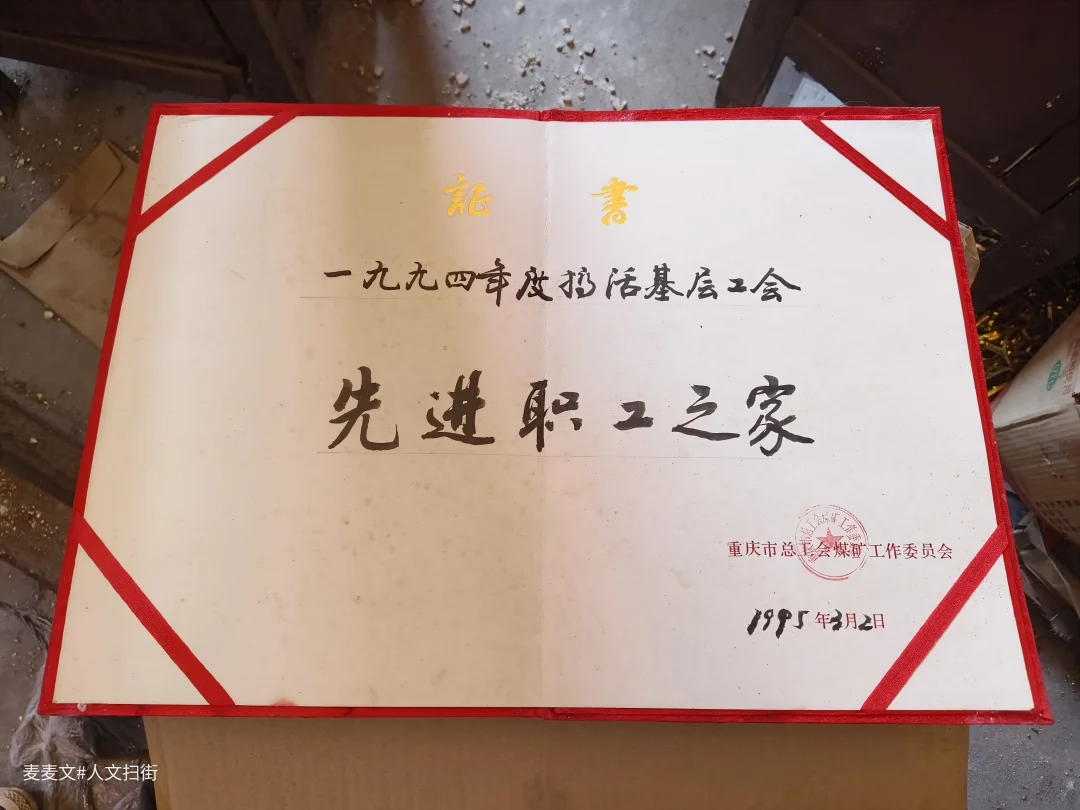 証書
一九九四年度搞活基层工会
先进职工之家
重庆市总工会煤矿工作委员会
1995年3月2日
麦麦文#人文扫街